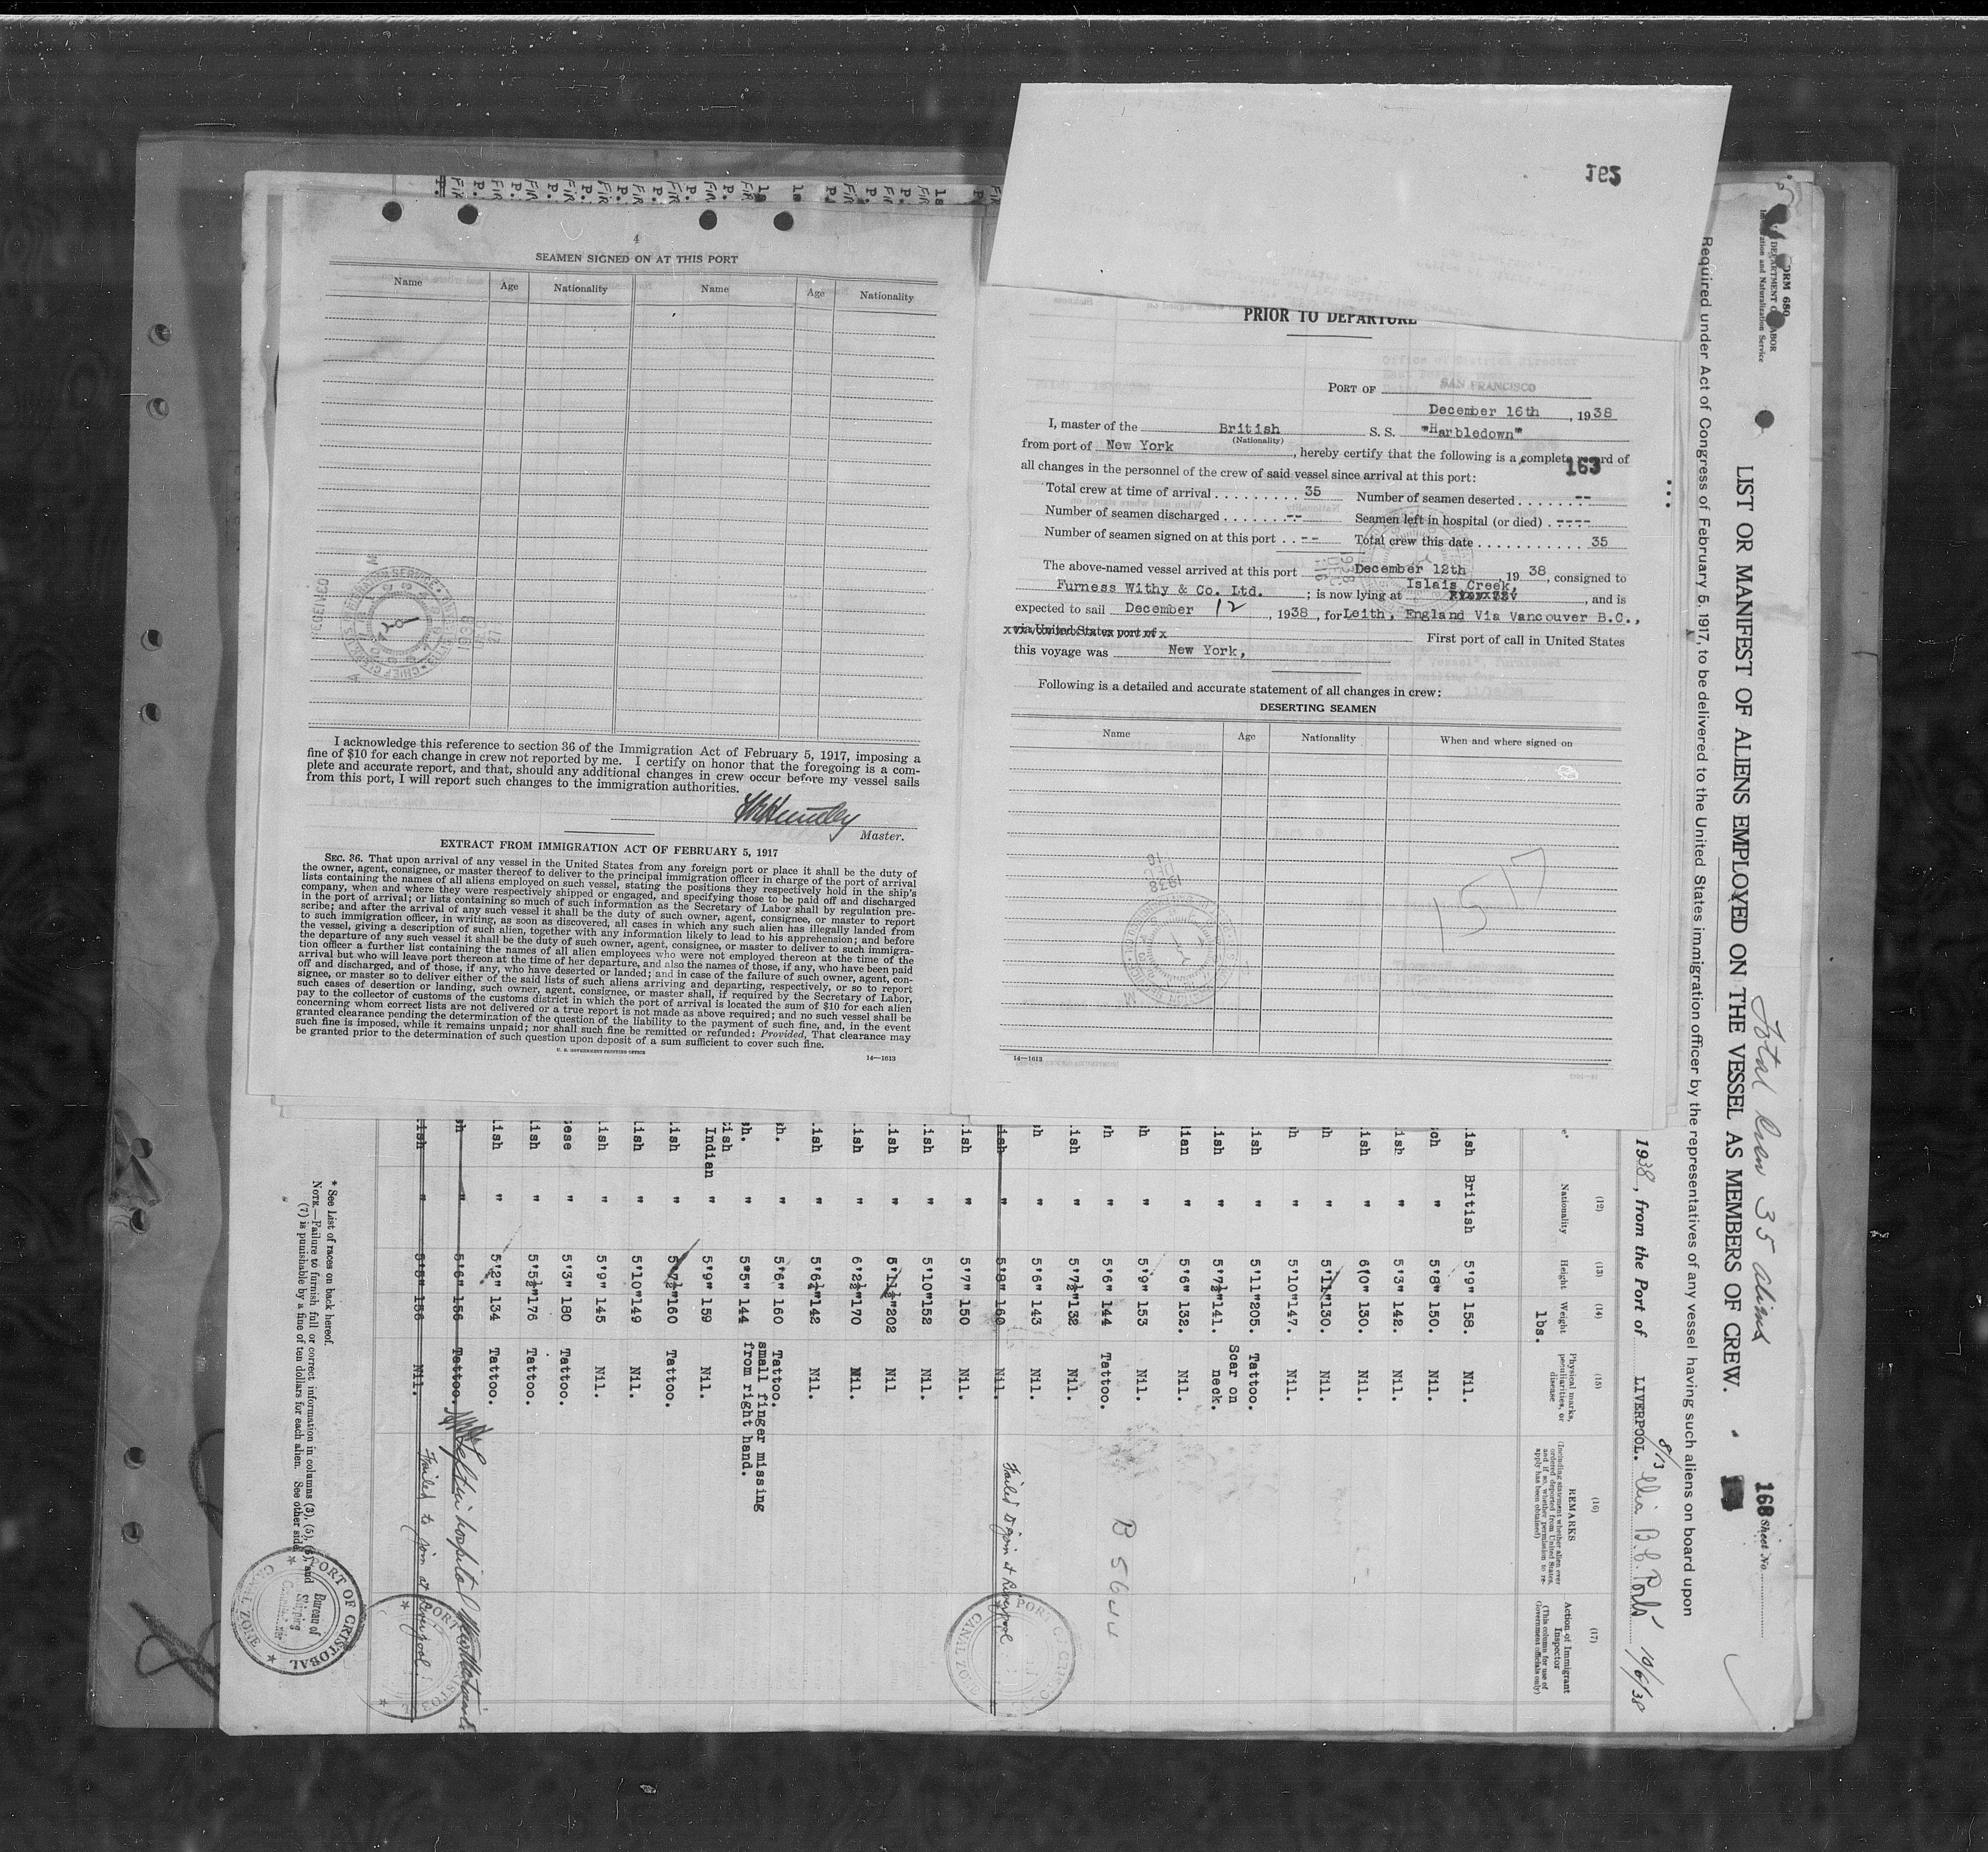 162
4
SEAMEN SIGNED ON AT THIS PORT
Name Age Nationality Name Age Nationality
I acknowledge this reference to section 36 of the Immigration Act of February 5, 1917, imposing a
fine of $10 for each change in crew not reported by me. I certify on honor that the foregoing is a com-
plete and accurate report, and that, should any additional changes in crew occur before my vessel sails
from this port, I will report such changes to the immigration authorities.
Master.
EXTRACT FROM IMMIGRATION ACT OF FEBRUARY 5, 1917
SEC. 36. That upon arrival of any vessel in the United States from any foreign port or place it shall be the duty of
the owner, agent, consignee, or master thereof to deliver to the principal immigration officer in charge of the port of arrival
lists containing the names of all aliens employed on such vessel, stating the positions they respectively hold in the ship's
company, when and where they were respectively shipped or engaged, and specifying those to be paid off and discharged
in the port of arrival; or lists containing so much of such information as the Secretary of Labor shall by regulation pre-
scribe; and after the arrival of any such vessel it shall be the duty of such owner, agent, consignee, or master to report
to such immigration officer, in writing, as soon as discovered, all cases in which any such alien has illegally landed from
the vessel, giving a description of such alien, together with any information likely to lead to his apprehension; and before
the departure of any such vessel it shall be the duty of such owner, agent, consignee, or master to deliver to such immigra-
tion officer a further list containing the names of all alien employees who were not employed thereon at the time of the
arrival but who will leave port thereon at the time of her departure, and also the names of those, if any, who have been paid
off and discharged, and of those, if any, who have deserted or landed; and in case of the failure of such owner, agent, con-
signee, or master so to deliver either of the said lists of such aliens arriving and departing, respectively, or so to report
such cases of desertion or landing, such owner, agent, consignee, or master shall, if required by the Secretary of Labor,
pay to the collector of customs of the customs district in which the port of arrival is located the sum of $10 for each alien
concerning whom correct lists are not delivered or a true report is not made as above required; and no such vessel shall be
granted clearance pending the determination of the question of the liability to the payment of such fine, and, in the event
such fine is imposed, while it remains unpaid; nor shall such fine be remitted or refunded: Provided, That clearance may
be granted prior to the determination of such question upon deposit of a sum sufficient to cover such fine.
U. S. GOVERNMENT PRINTING OFFICE 14—1613
PRIOR TO DEPARTURE
PORT OF SAN FRANCISCO
December 16th, 1938
I, master of the British S. S. "Harbledown"
(Nationality)
from port of New York, hereby certify that the following is a complete record of
163
all changes in the personnel of the crew of said vessel since arrival at this port:
Total crew at time of arrival . . . . . . . . . 35 Number of seamen deserted . . . . . . . --
Number of seamen discharged . . . . . . . -- Seamen left in hospital (or died) . ----
Number of seamen signed on at this port . . -- Total crew this date . . . . . . . . . . . 35
The above-named vessel arrived at this port December 12th, 1938, consigned to
Furness Withy & Co. Ltd. ; is now lying at Islais Creek, and is
expected to sail December 12, 1938, for Leith, England Via Vancouver B.C.,
via United States port of First port of call in United States
this voyage was New York,
Following is a detailed and accurate statement of all changes in crew:
DESERTING SEAMEN
Name Age Nationality When and where signed on
1517
14—1613
FORM 680
DEPARTMENT OF LABOR
Immigration and Naturalization Service
Total Crew 35 aliens
168 Sheet No.
LIST OR MANIFEST OF ALIENS EMPLOYED ON THE VESSEL AS MEMBERS OF CREW.
Required under Act of Congress of February 5, 1917, to be delivered to the United States immigration officer by the representatives of any vessel having such aliens on board upon
1938, from the Port of LIVERPOOL. 8/13 Via B.C. Ports 10/6/38
(12) (13) (14) (15) (16) (17)
Nationality Height Weight Physical marks, peculiarities, or disease REMARKS Action of Immigrant Inspector
(Including statement whether alien ever ordered deported from United States, and if so, whether permission to re-apply has been obtained)
(This column for use of Government officials only)
lbs.
ish British 5'9" 158. Nil.
ch " 5'8" 150. Nil.
ish " 5'3" 142. Nil.
ish " 6'0" 130. Nil.
h " 5'11" 130. Nil.
h " 5'10" 147. Nil.
ish " 5'11" 205. Tattoo.
ish " 5'7½" 141. Scar on neck.
ian " 5'6" 132. Nil.
h " 5'9" 153 Nil.
h " 5'6" 144 Tattoo. B 5644
ish " 5'7½" 132 Nil.
h " 5'6" 143 Nil.
ish " 5'8" 160 Nil. Failed to join at Liverpool
ish " 5'7" 150 Nil.
ish " 5'10" 152 Nil.
ish " 5'11½" 202 Nil
ish " 6'2½" 170 Nil.
ish " 5'6¼" 142 Nil.
h. " 5'6" 160 Tattoo.
h. 5'5" 144 small finger missing from right hand.
Indian " 5'9" 159 Nil.
ish " 5'7½" 160 Tattoo.
ish " 5'10" 149 Nil.
ish " 5'9" 145 Nil.
ese " 5'3" 180 Tattoo.
ish " 5'5½" 176 Tattoo.
ish " 5'2" 134 Tattoo.
h " 5'6" 156 Tattoo. Left in hospital
ish " 5'8" 156 Nil. Failed to join at Liverpool.
* See List of races on back hereof.
NOTE.—Failure to furnish full or correct information in columns (3), (5), (6), and
(7) is punishable by a fine of ten dollars for each alien. See other side.
PORT OF CRISTOBAL
CANAL ZONE
Bureau of
Shipping